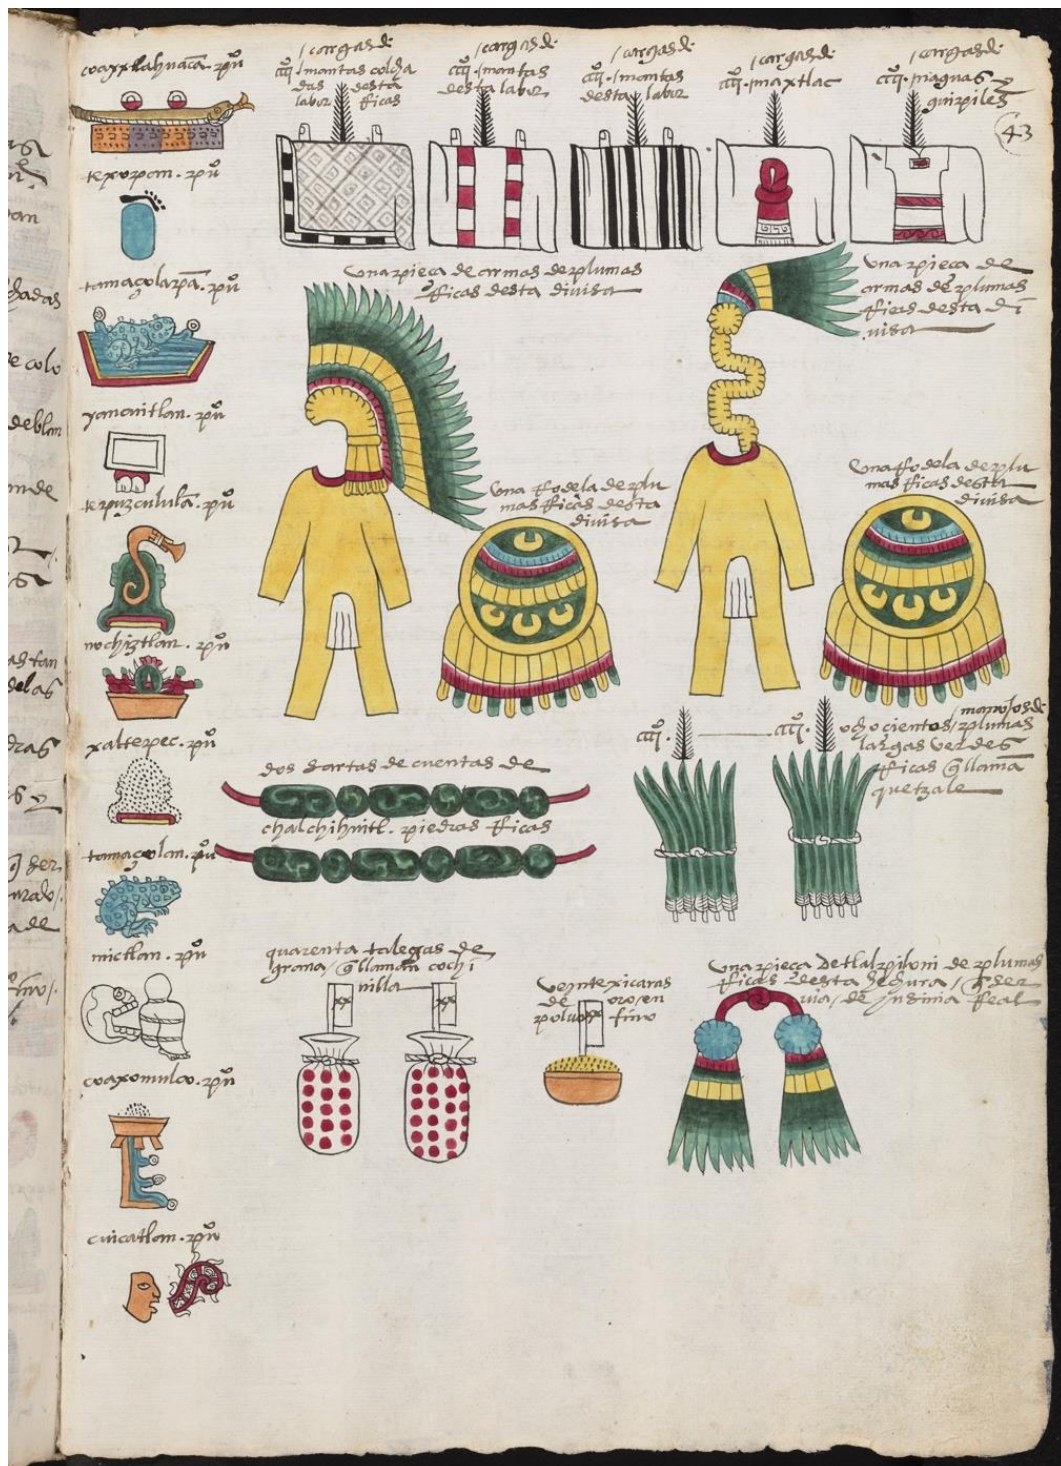 coayxtlahuacā. pūo
texopan. pūo
tamaçolapā. pūo
yancuitlan. pūo
tepuzcululā. pūo
nochiztlan. pūo
xaltepec. pūo
tamaçolan. pūo
mictlan. pūo
coaxomulco. pūo
cuicatlan. pūo
/ cargas de
cccc°. / mantas colcha
das desta
labor ricas
/ cargas de
cccc°. / mantas
desta labor
/ cargas de
cccc°. / mantas
desta labor
/ cargas de
cccc°. maxtlac
/ cargas de
cccc°. naguas &
guipiles
43
una pieca de armas de plumas
ricas desta divisa
una pieca de
armas de plumas
ricas desta di
visa
una rodela de plu
mas ricas desta
divisa
una rodela de plu
mas ricas desta
divisa
dos sartas de cuentas de
chalchihuitl. piedras ricas
cccc°. cccc°. ochocientos / manojos de
plumas
largas verdes
ricas q̄ llamā
quetzale
quarenta talegas de
grana / q̄ llaman cochi
nilla
veinte xicaras
de oro en
polvo fino
una pieca de tlalpiloni de plumas
ricas desta hechura / q̄ ser
via / de ynsinia real